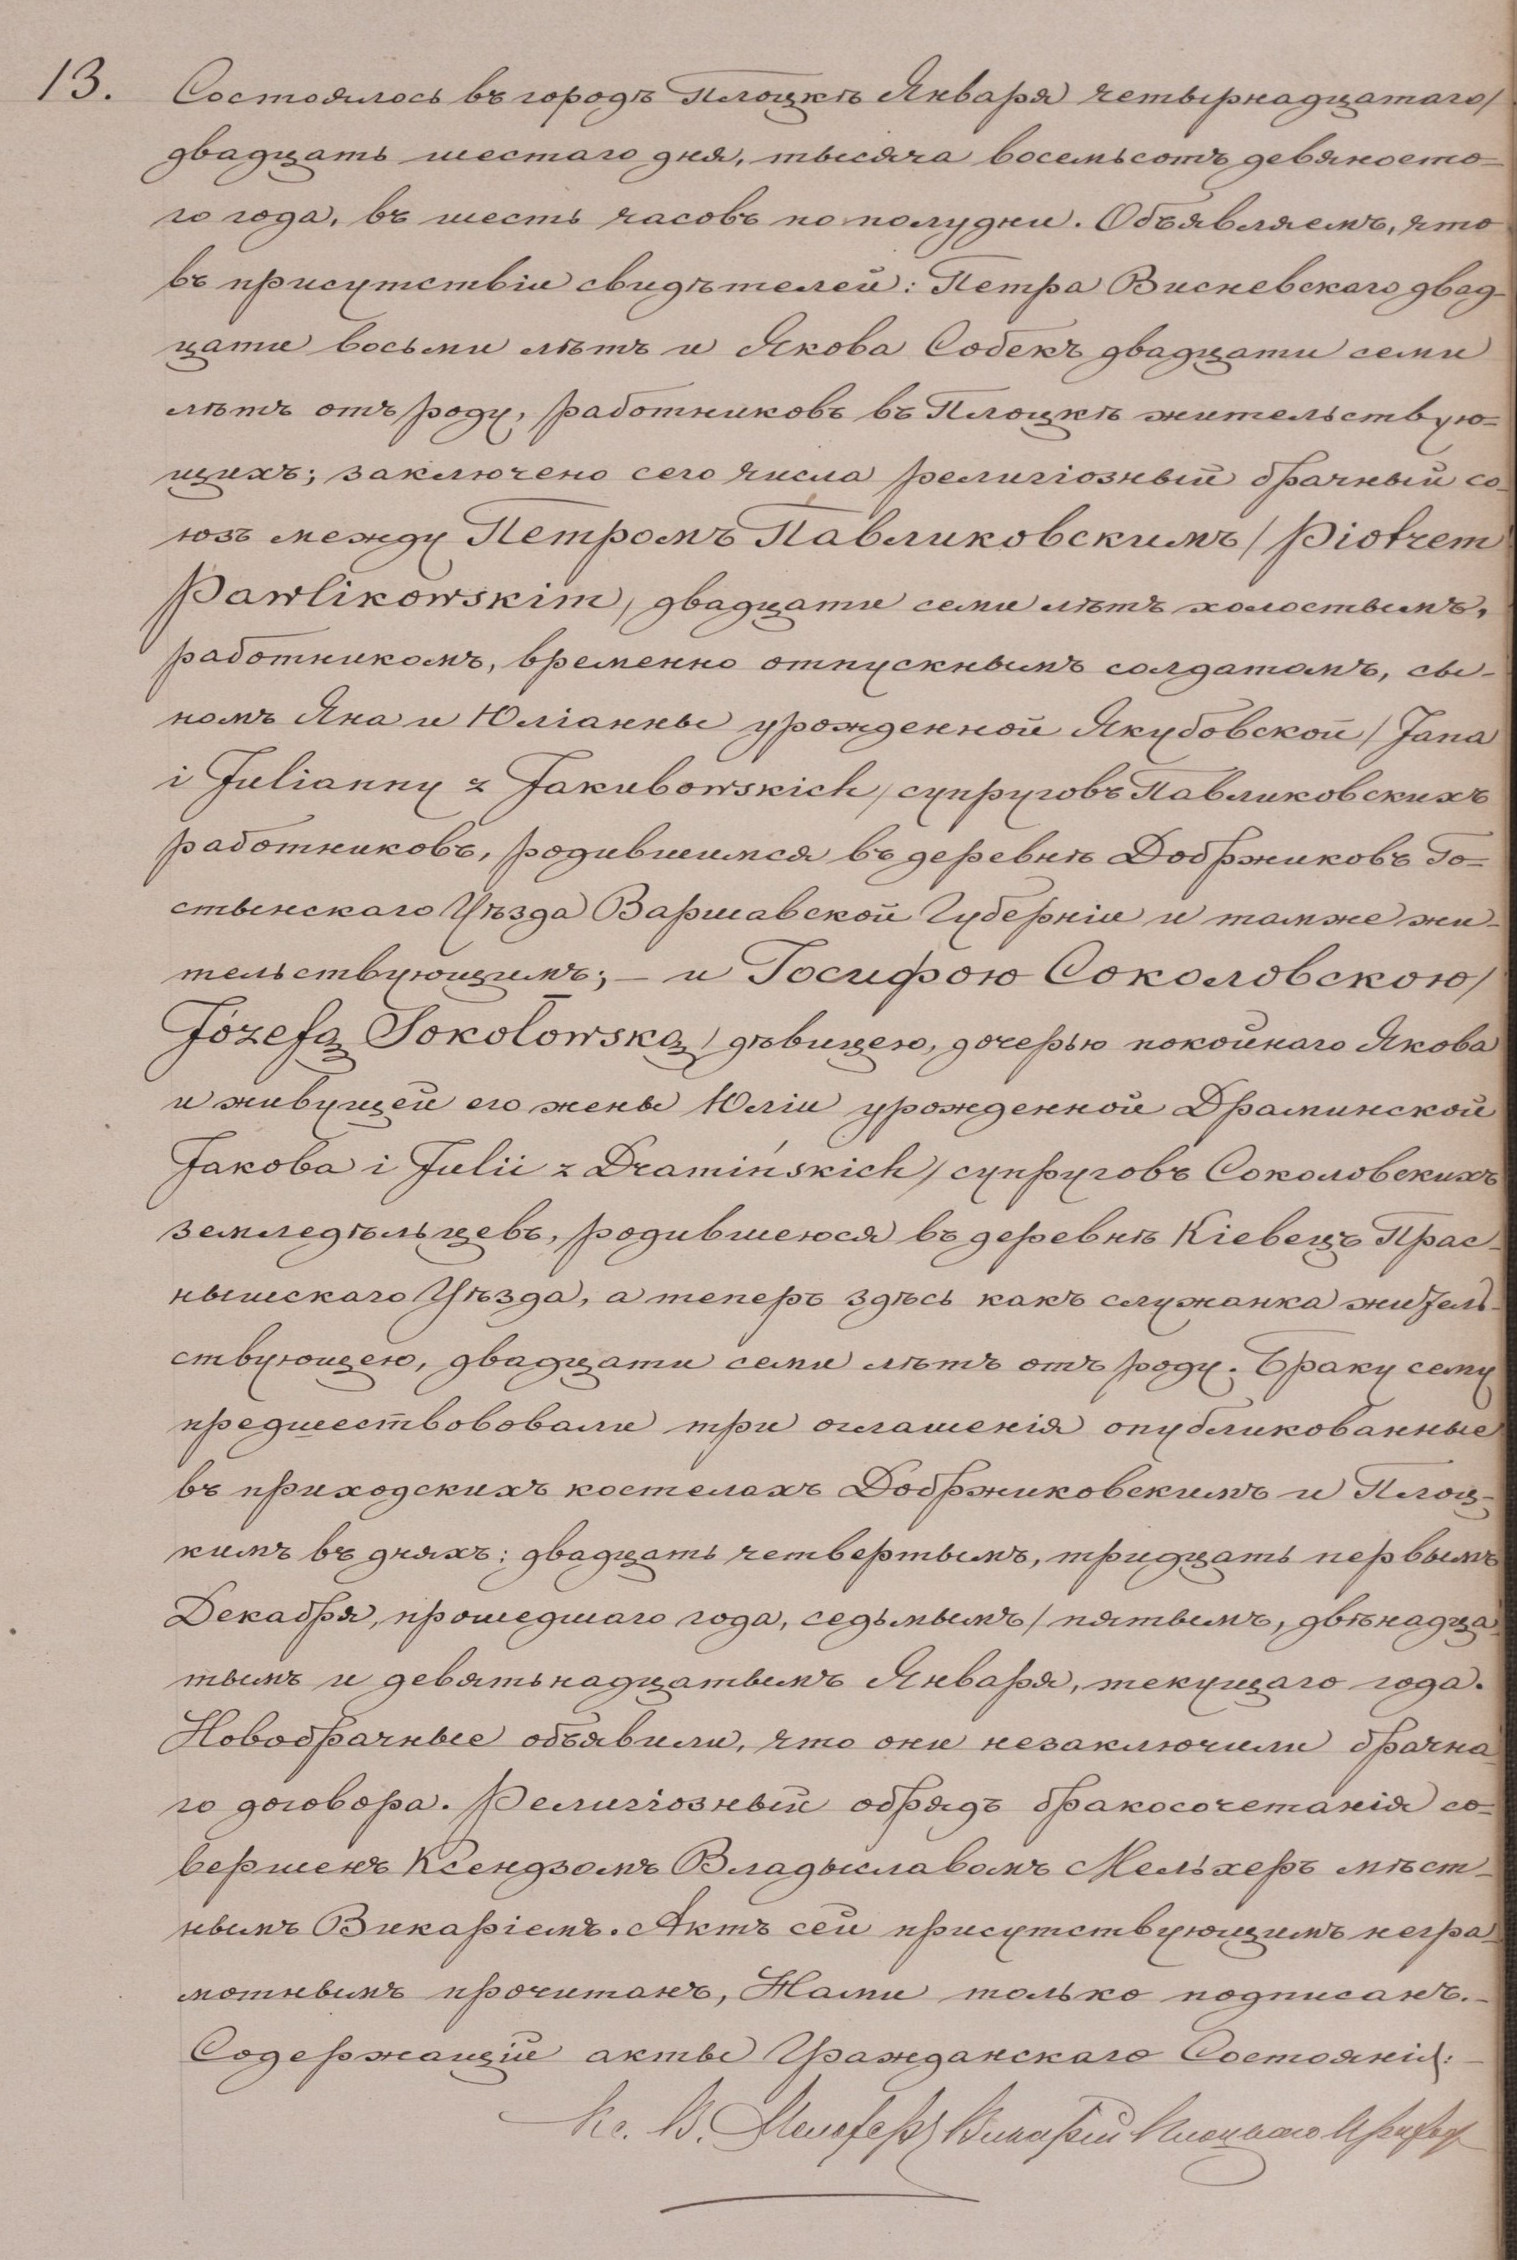 13. Состоялось въ городѣ Плоцкѣ Января четырнадцатаго/
двадцать шестаго дня, тысяча восемьсотъ девяносто-
го года, въ шесть часовъ по полудни. Объявляемъ, что
въ присутствіи свидѣтелей: Петра Висневскаго двад-
цати восьми лѣтъ и Якова Собекъ двадцати семи
лѣтъ отъ роду, работниковъ въ Плоцкѣ жительствую-
щихъ; заключено сего числа религіозный брачный со-
юзъ между Петромъ Павликовскимъ / Piotrem
Pawlikowskim, двадцати семи лѣтъ холостымъ,
работникомъ, временно отпускнымъ солдатомъ, сы-
номъ Яна и Юліанны урожденной Якубовской / Jana
i Julianny z Jakubowskich / супруговъ Павликовскихъ
работниковъ, родившимся въ деревнѣ Добржиковъ Го-
стынскаго Уѣзда Варшавской Губерніи и тамже жи-
тельствующимъ; — и Іосифою Соколовскою /
Józefą Sokołowską / дѣвицею, дочерью покойнаго Якова
и живущей его жены Юліи урожденной Драминской
Jakoba i Julii z Dramińskich / супруговъ Соколовскихъ
земледѣльцевъ, родившеюся въ деревнѣ Кіевецъ Прас-
нышскаго Уѣзда, а теперъ здѣсь какъ служанка житель-
ствующею, двадцати семи лѣтъ отъ роду. Браку сему
предшествововали три оглашенія опубликованные
въ приходскихъ костелахъ Добржиковскимъ и Плоц-
кимъ въ дняхъ: двадцать четвертымъ, тридцать первымъ
Декабря, прошедшаго года, седьмымъ / пятымъ, двѣнадца-
тымъ и девятьнадцатымъ Января, текущаго года.
Новобрачные объявили, что они незаключили брачна-
го договора. Религіозный обрядъ бракосочетанія со-
вершенъ Ксендзомъ Владыславомъ Мельхеръ мѣст-
нымъ Викаріемъ. Актъ сей присутствующимъ негра-
мотнымъ прочитанъ, Нами только подписанъ.—
Содержащій акты Гражданскаго Состоянія: —
Кс. В. Мельхеръ Викарій Плоцкаго Прихода